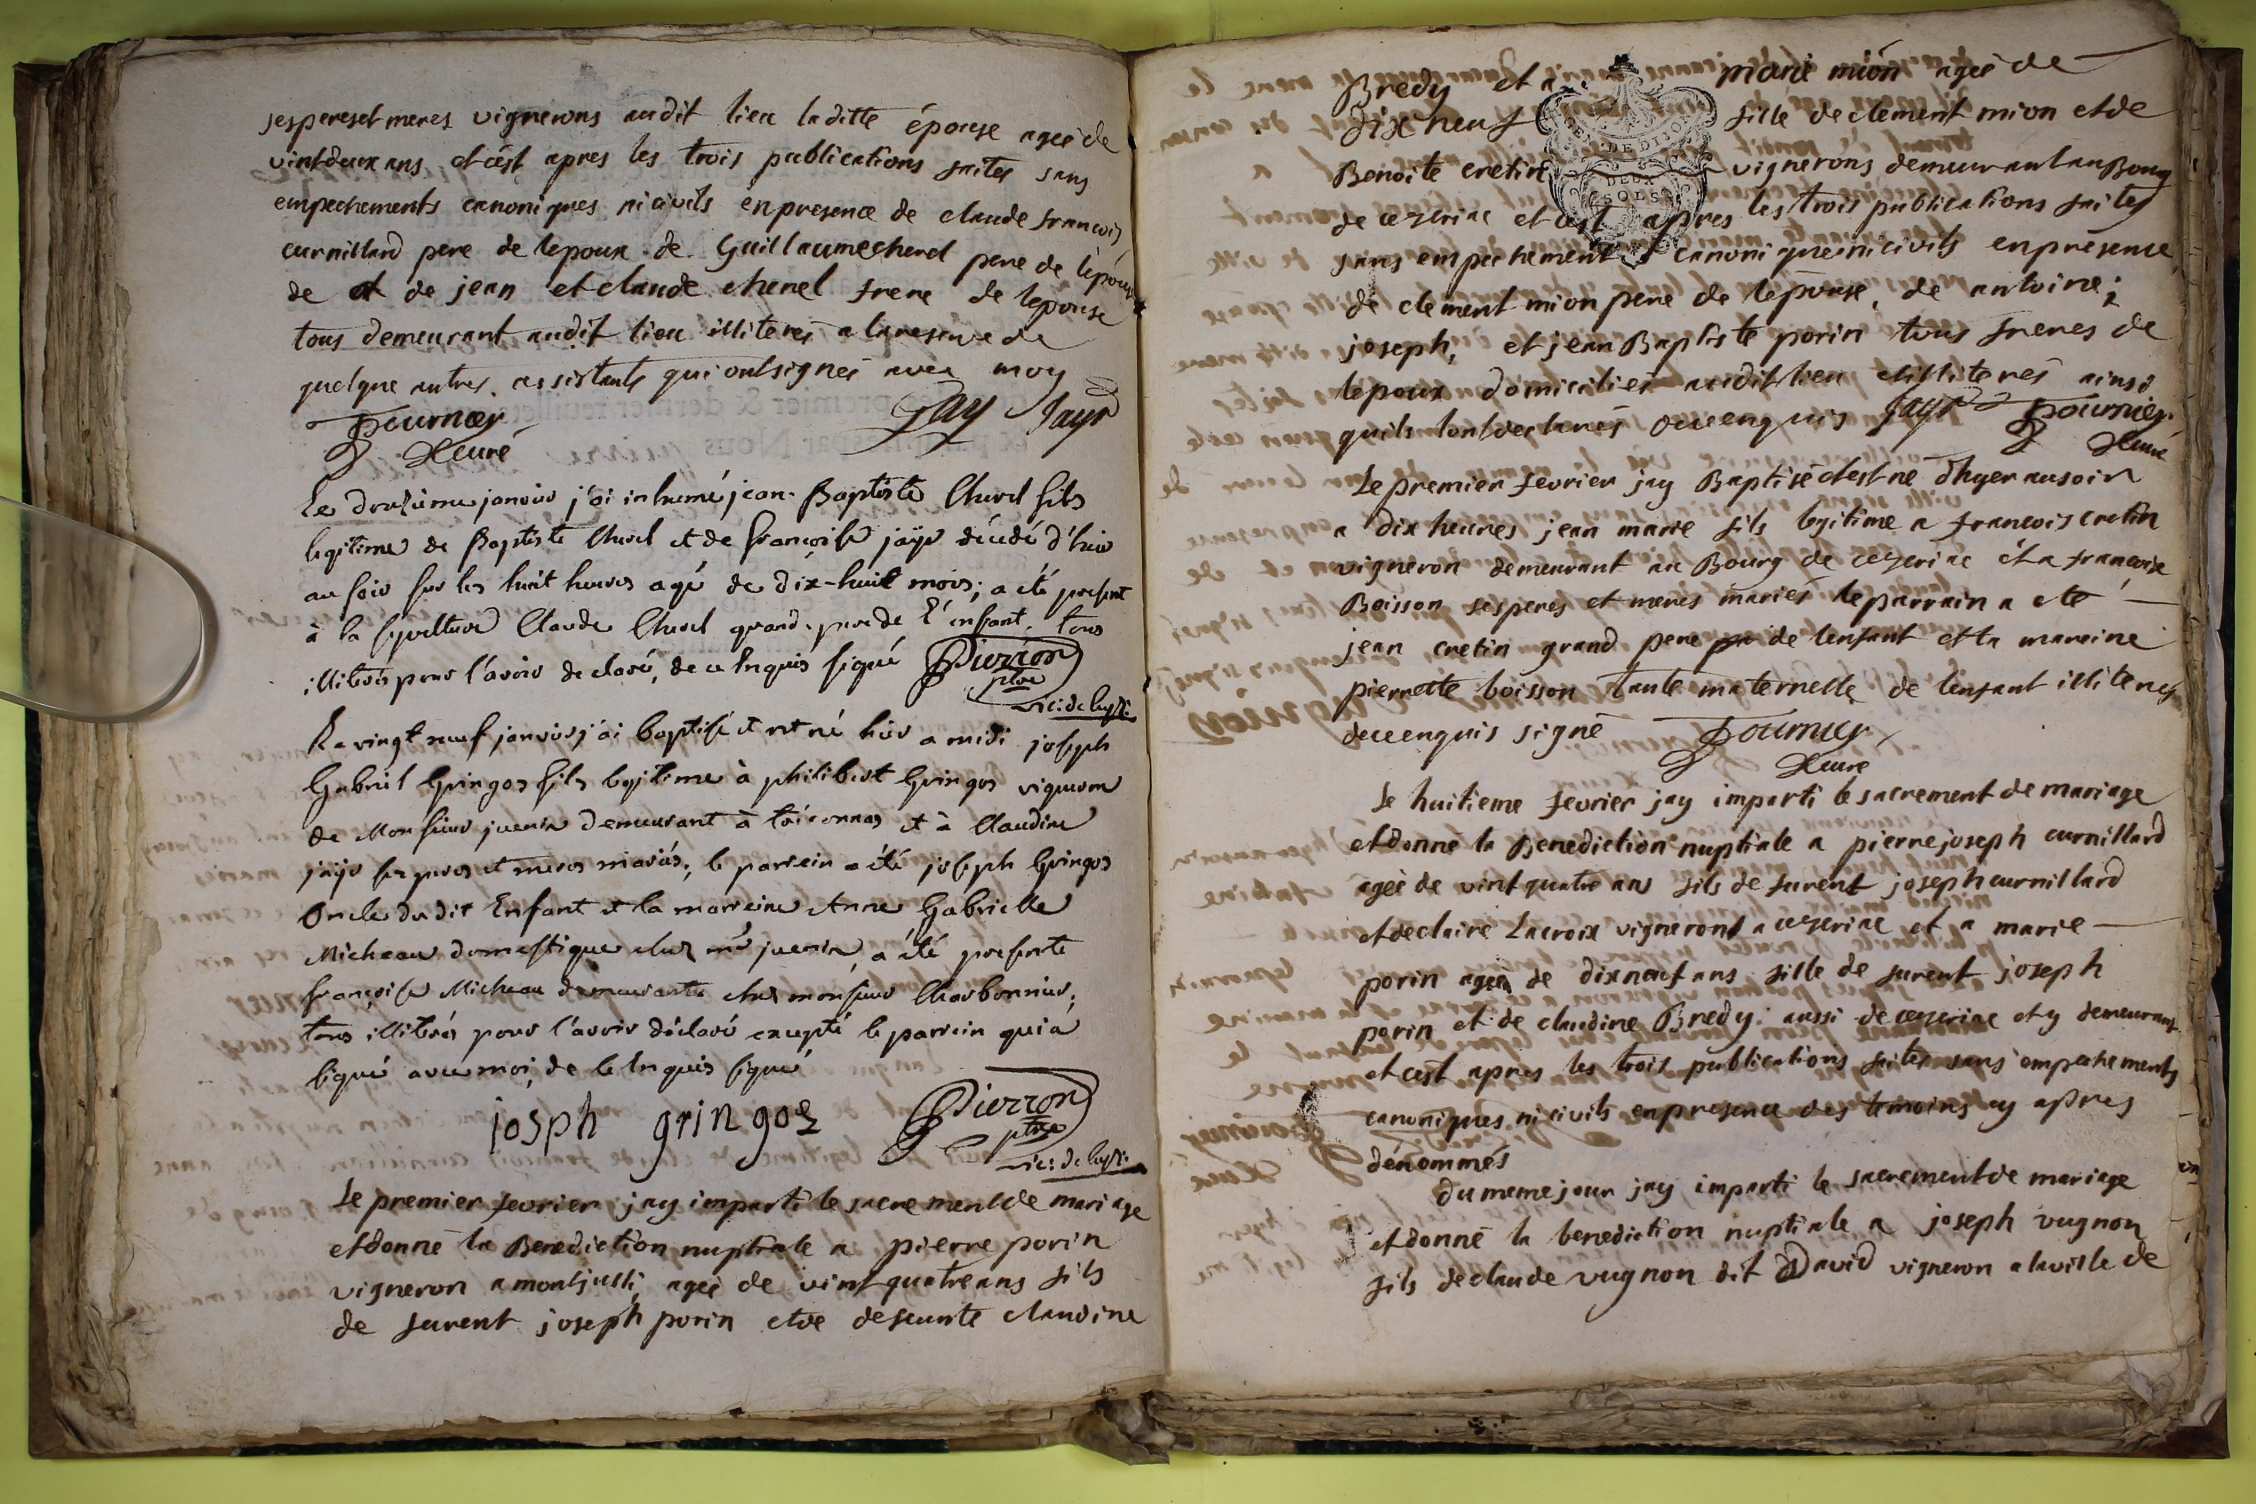 ses peres et meres vignerons audit lieu laditte épouse ageé de
vint deux ans et cést apres les trois publications faites sans
empechements canoniques ni civils en presence de claude francois
curnillard pere de lepoux de Guillaume cherel pere de lépouse
de et de jean et claude cherel frere de lepouse
tous demeurant audit lieu illiterés a la reserve de
quelque autres assistants qui ont signés avec moy
Fournier Jay Jayr
Curé
Le douzieme janvier j'ai inhumé jean-Baptiste Cherel fils
legitime de Baptiste Cherel et de françoise jaÿr décédé d'hier
au soir sur les huit heures agé de dix-huit mois; a été present
à la sepulture Claude Cherel grand-pere de l'enfant. tous
illiterés pour l'avoir declaré, de ce Enquis signé Pierron
ptre
vic: de ceyz:
Le vingt neuf janvier j'ai baptisé et est né hier a midi joseph
Gabriel Gringos fils legitime à philibert Gringos vigneron
de Monsieur juenin demeurant à toiconnas et à Claudine
jaÿr ses peres et meres mariés; le parrein a été joseph Gringos
Oncle du dit Enfant et la marreine Anne Gabrielle
Micheau domestique chez mr juenin, a été presente
françoise Micheau demeurante chez monsieur Charbonnier;
tous illiterés pour l'avoir déclaré excepté le parrein qui a
signé avec moi, de ce Enquis signé
joSph grin goz Pierron
ptre
vic: de ceyz:
Le premier fevrier jay imparti le sacrement de mariage
et donné la Benediction nuptiale a pierre porin
vigneron a montjulli ageé de vint quatre ans fils
de furent joseph porin et de defeunte claudine
Bredy et a marie mion ageé de
dix neuf fille de clement mion et de
Benoite cretin vignerons demeurant au Bourg
DE DIJON
DEUX
SOLS
de ceyzeriac et cest apres les trois publications faites
sans empechement canonique ni civils en présence
de clement mion pere de lepouse, de antoine;
joseph, et jean Baptiste porin tous freres de
lepoux domiciliés audit lieu et illiterés ainsi
quils lont declarés de ce enquis Jayr Fournier
Curé
Le premier fevrier jay Baptisé et est né d'hyer au soir
a dix heures jean marie fils legitime a francois cretin
vigneron demeurant au Bourg de ceyzeriac et a francoise
Boisson ses peres et meres mariés le parrain a eté
jean cretin grand pere de lenfant et la mareine
pierrette boisson tante maternelle de lenfant illiterés
de ce enquis signé Fournier
Curé
Le huitieme fevrier jay imparti le sacrement de mariage
et donné la Benediction nuptiale a pierre joseph curnillard
ageé de vint quatre ans fils de furent joseph curnillard
et de claire Lacroix vignerons a ceyzeriac et a marie
porin ageé de dix neuf ans fille de furent joseph
porin et de claudine Bredy aussi de ceyzeriac et y demeurant
et cest apres les trois publications faites sans empechements
canoniques ni civils en presence des temoins cy apres
dénommés
du meme jour jay imparti le sacrement de mariage
et donné la benediction nuptiale a joseph vugnon
fils de claude vugnon dit David vigneron a la ville de